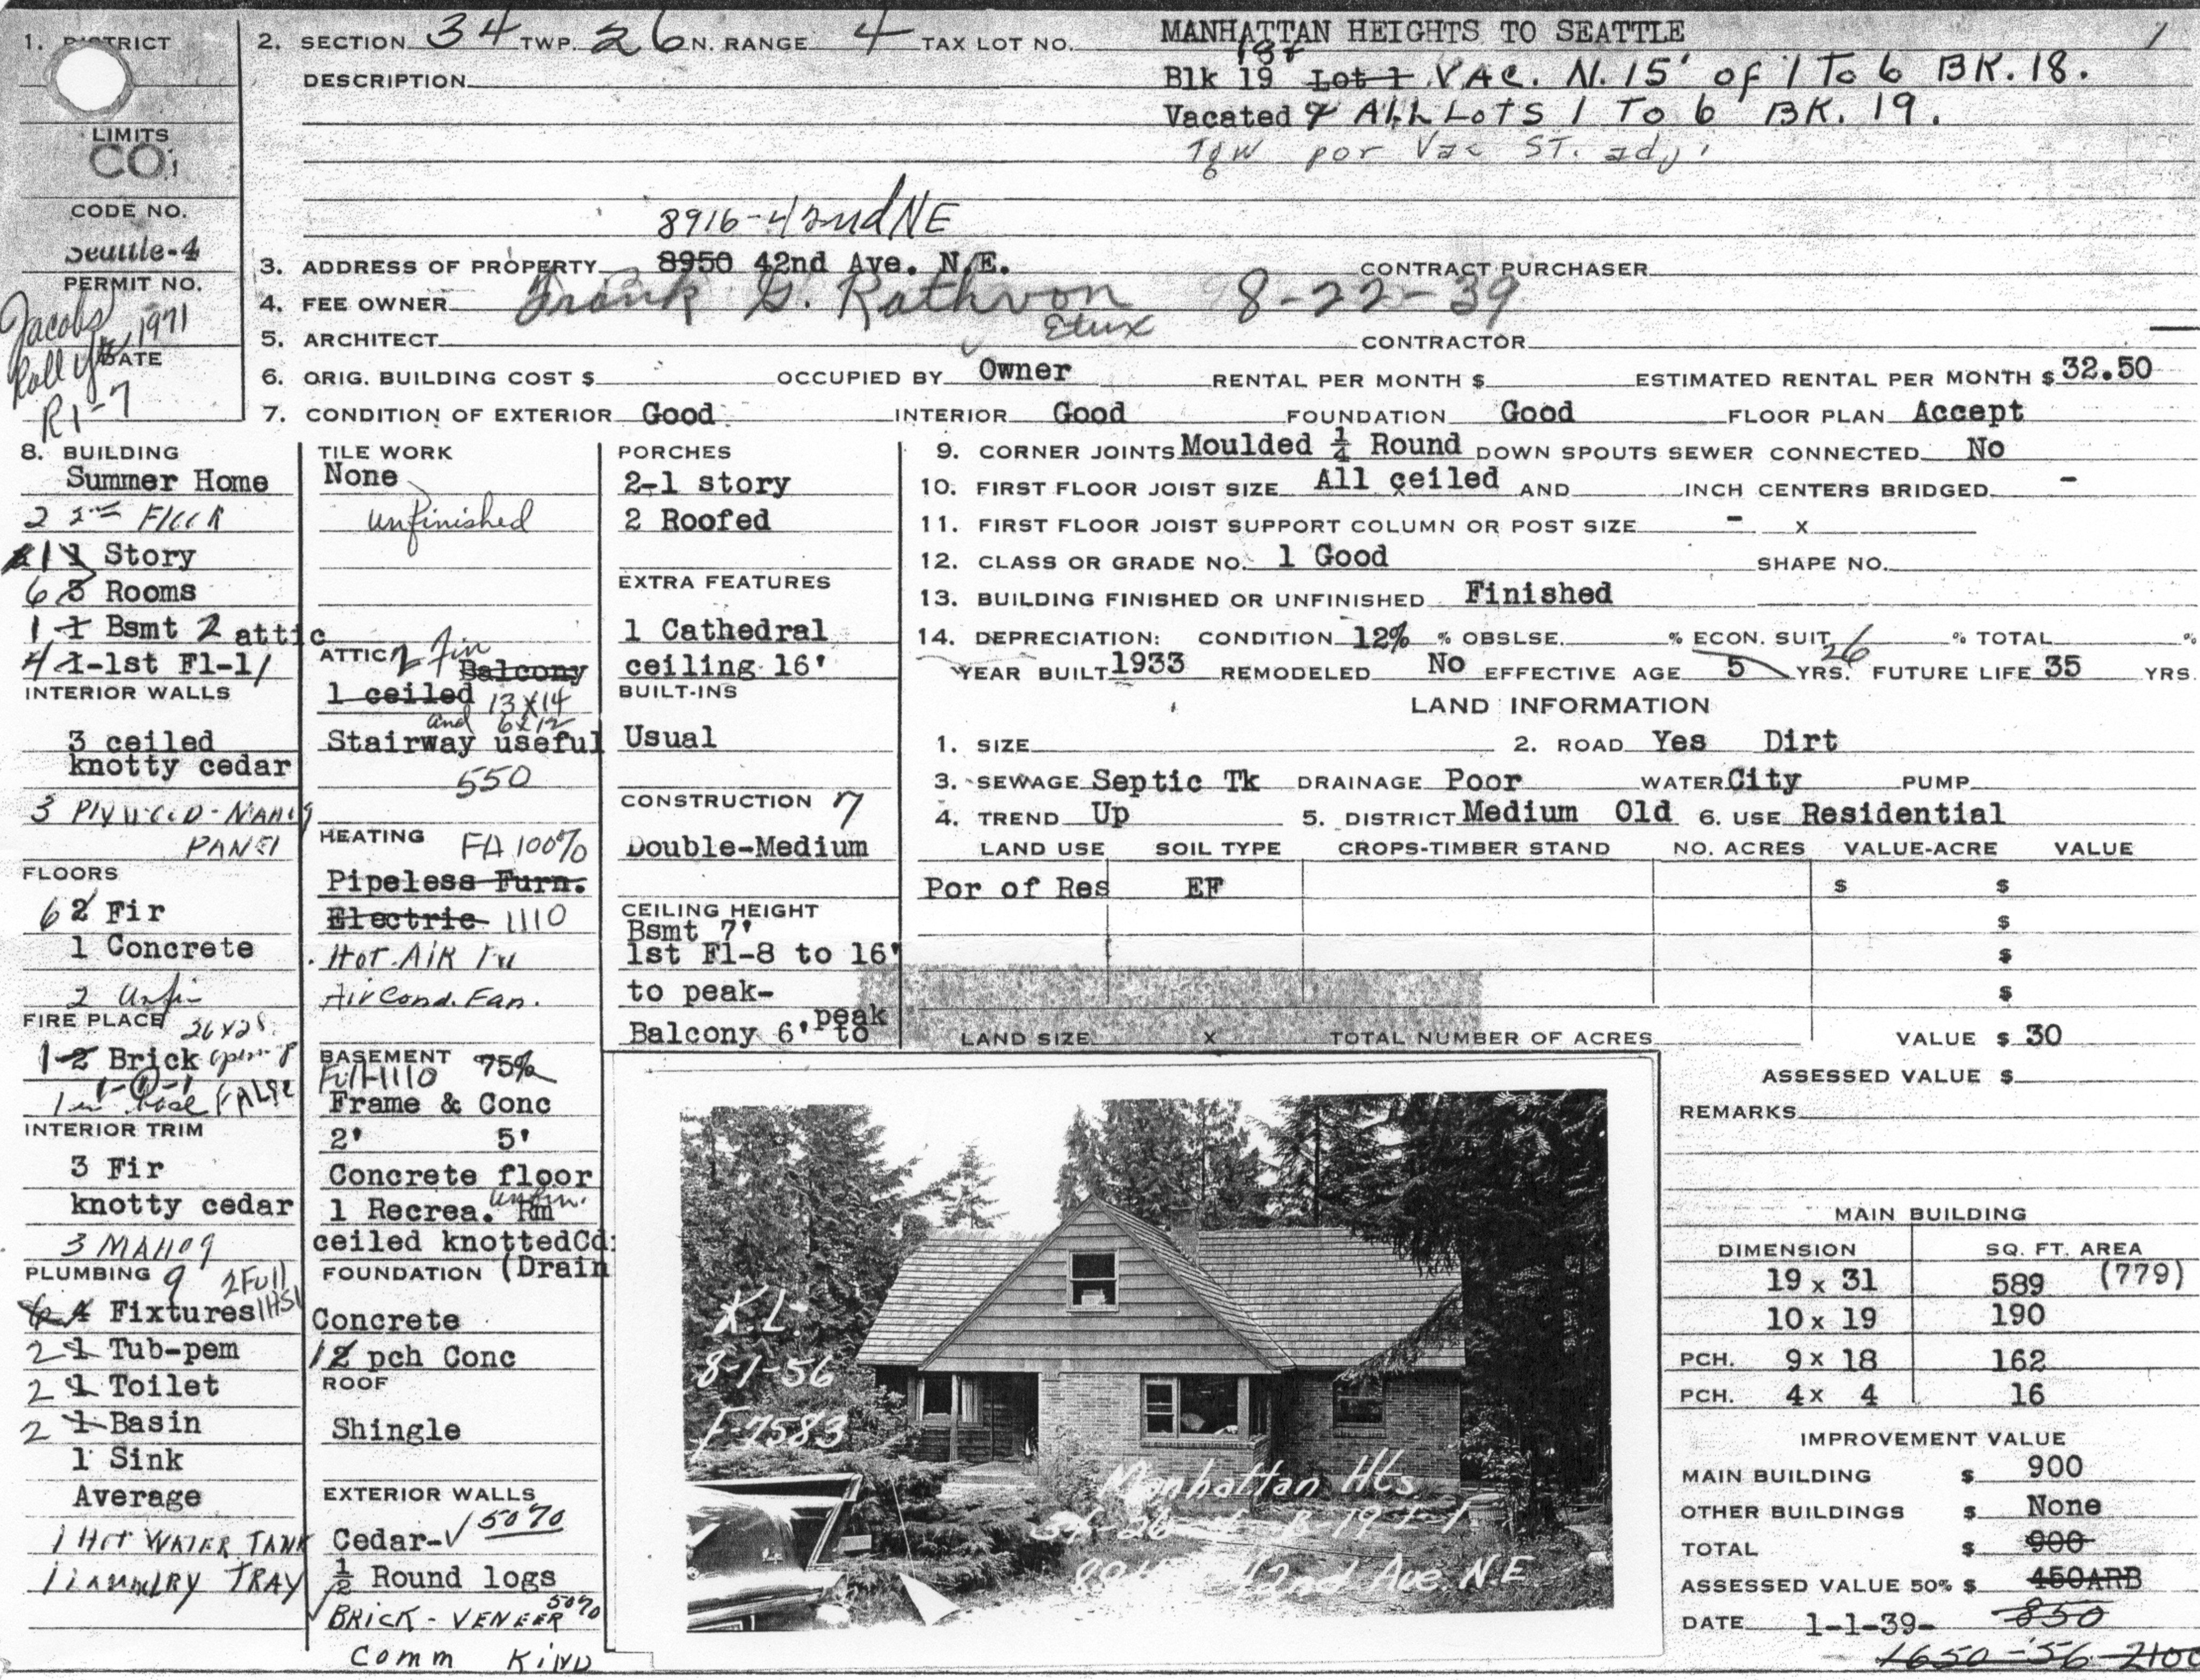 1. DISTRICT
2. SECTION 34 TWP. 26 N. RANGE 4 TAX LOT NO.
MANHATTAN HEIGHTS TO SEATTLE
1
DESCRIPTION
Blk 19 Lot 1 VAC. N. 15' of 1 To 6 BK. 18.
Vacated & ALL LOTS 1 To 6 BK. 19.
Tgw por Vac ST. adj.
LIMITS
CO.
CODE NO.
Seattle-4
PERMIT NO.
Jacobs
1971
DATE
R1-7
8916-42nd NE
3. ADDRESS OF PROPERTY 8950 42nd Ave. N.E. CONTRACT PURCHASER
4. FEE OWNER Frank G. Rathvon 8-22-39
Etux
5. ARCHITECT CONTRACTOR
6. ORIG. BUILDING COST $ OCCUPIED BY Owner RENTAL PER MONTH $ ESTIMATED RENTAL PER MONTH $ 32.50
7. CONDITION OF EXTERIOR Good INTERIOR Good FOUNDATION Good FLOOR PLAN Accept
8. BUILDING
Summer Home
2 2nd FlooR
1 1 Story
6 3 Rooms
1 1 Bsmt 2 attic
4 1-1st Fl-1/
INTERIOR WALLS
3 ceiled
knotty cedar
3 PlYWOOD-MAHOg
PANEl
FLOORS
6 2 Fir
1 Concrete
2 Unfin
FIRE PLACE 26x28
1-2 Brick
FALSE
INTERIOR TRIM
3 Fir
knotty cedar
3 MAHOg
PLUMBING 9 2 Full
6 4 Fixtures
2 1 Tub-pem
2 1 Toilet
2 1 Basin
1 Sink
Average
1 Hot WATER TANK
1 LAUNDRY TRAY
TILE WORK
None
Unfinished
ATTIC 2 fin
Balcony
1 ceiled 13x14
and 6x12
Stairway useful
550
HEATING FA 100%
Pipeless Furn.
Electric 1110
Hot-AiR Fu
Air Cond. Fan.
BASEMENT 75%
Full-1110
Frame & Conc
2' 5'
Concrete floor
unfin.
1 Recrea. Rm
ceiled knottedCd
FOUNDATION (Drain
Concrete
1 2 pch Conc
ROOF
Shingle
EXTERIOR WALLS
Cedar-✓ 50%
½ Round logs
✓ BRICK-VENEER 50%
Comm KiND
PORCHES
2-1 story
2 Roofed
EXTRA FEATURES
1 Cathedral
ceiling 16'
BUILT-INS
Usual
CONSTRUCTION 7
Double-Medium
CEILING HEIGHT
Bsmt 7'
1st Fl-8 to 16'
to peak-
Balcony 6' to peak
9. CORNER JOINTS Moulded ¼ Round DOWN SPOUTS SEWER CONNECTED No
10. FIRST FLOOR JOIST SIZE All ceiled x AND INCH CENTERS BRIDGED -
11. FIRST FLOOR JOIST SUPPORT COLUMN OR POST SIZE - x
12. CLASS OR GRADE NO. 1 Good SHAPE NO.
13. BUILDING FINISHED OR UNFINISHED Finished
14. DEPRECIATION: CONDITION 12% % OBSLSE. % ECON. SUIT. % TOTAL %
YEAR BUILT 1933 REMODELED No EFFECTIVE AGE 5 YRS. 26 FUTURE LIFE 35 YRS.
LAND INFORMATION
1. SIZE 2. ROAD Yes Dirt
3. SEWAGE Septic Tk DRAINAGE Poor WATER City PUMP
4. TREND Up 5. DISTRICT Medium Old 6. USE Residential
LAND USE SOIL TYPE CROPS-TIMBER STAND NO. ACRES VALUE-ACRE VALUE
Por of Res EF $ $
$
$
$
LAND SIZE x TOTAL NUMBER OF ACRES VALUE $ 30
ASSESSED VALUE $
REMARKS
MAIN BUILDING
DIMENSION SQ. FT. AREA
19 x 31 589 (779)
10 x 19 190
PCH. 9 x 18 162
PCH. 4 x 4 16
IMPROVEMENT VALUE
MAIN BUILDING $ 900
OTHER BUILDINGS $ None
TOTAL $ 900
ASSESSED VALUE 50% $ 450ARB
DATE 1-1-39- 850
1650-56-2100
K.L.
8-1-56
F-7583
Manhattan Hts.
34-26-4 B-19 L-1
42nd Ave. N.E.